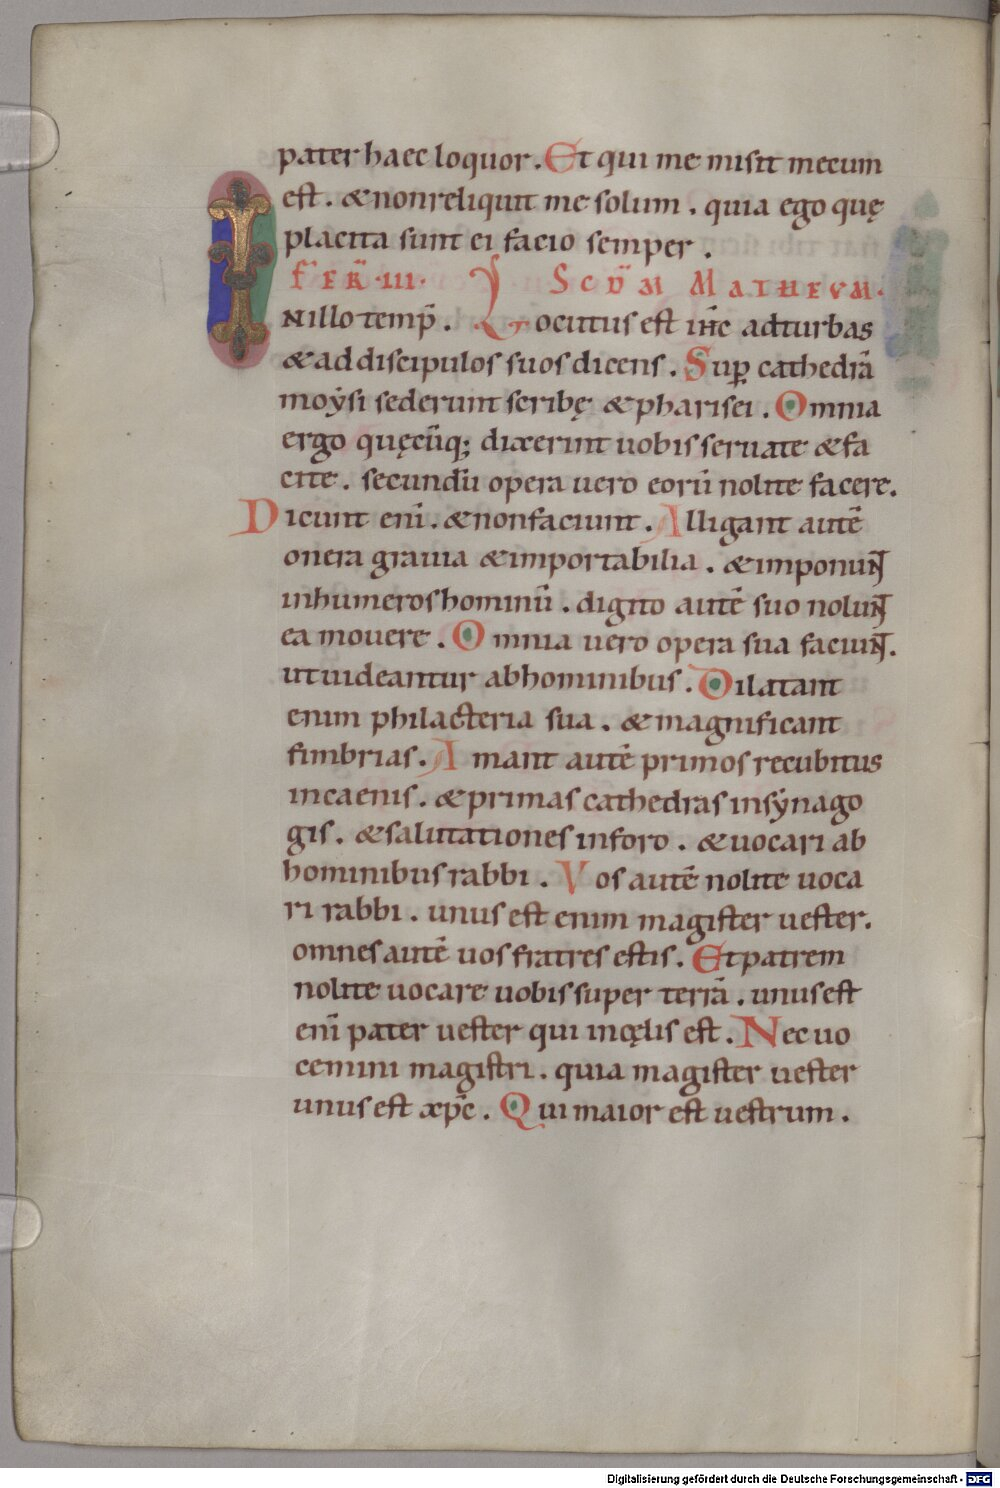 pater haec loquor. Et qui me misit mecum
est. & non reliquit me solum. quia ego quę
placita sunt ei facio semper.
FER̄·III· SCD̄M MATHEVM·
INillo temp̄. Locutus est ih̄c adturbas
& ad discipulos suos dicens. Sup̲ cathedrā
moẏsi sederunt scribę & pharisei. Omnia
ergo quęcūq; dixerint uobis seruate & fa
cite. secundū opera uero eorū nolite facere.
Dicunt enī. & non faciunt. Alligant autē
onera grauia & importabilia. & imponunt
inhumeros hominū. digito autē suo nolunt
ea mouere. Omnia uero opera sua faciunt.
ut uideantur ab hominibus. Dilatant
enim philacteria sua. & magnificant
fimbrias. Amant autē primos recubitus
incaenis. & primas cathedras insẏnago
gis. & salutationes inforo. & uocari ab
hominibus rabbi. Vos autē nolite uoca
ri rabbi. unus est enim magister uester.
omnes autē uos fratres estis. Et patrem
nolite uocare uobis super terrā. unus est
enī pater uester qui incęlis est. Nec uo
cemini magistri. quia magister uester
unus est xp̄c. Qui maior est uestrum.
Digitalisierung gefördert durch die Deutsche Forschungsgemeinschaft - DFG